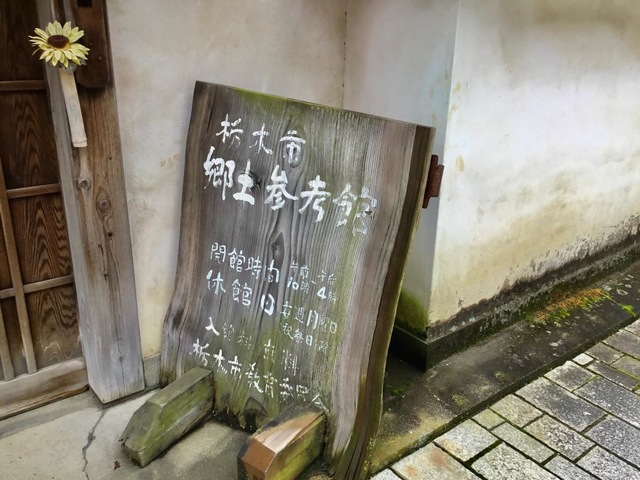 栃木市
郷土参考館
開館時間 午前10時 - 午後4時
休館日 毎週月曜日 祝祭日
入館料 無料
栃木市教育委員会